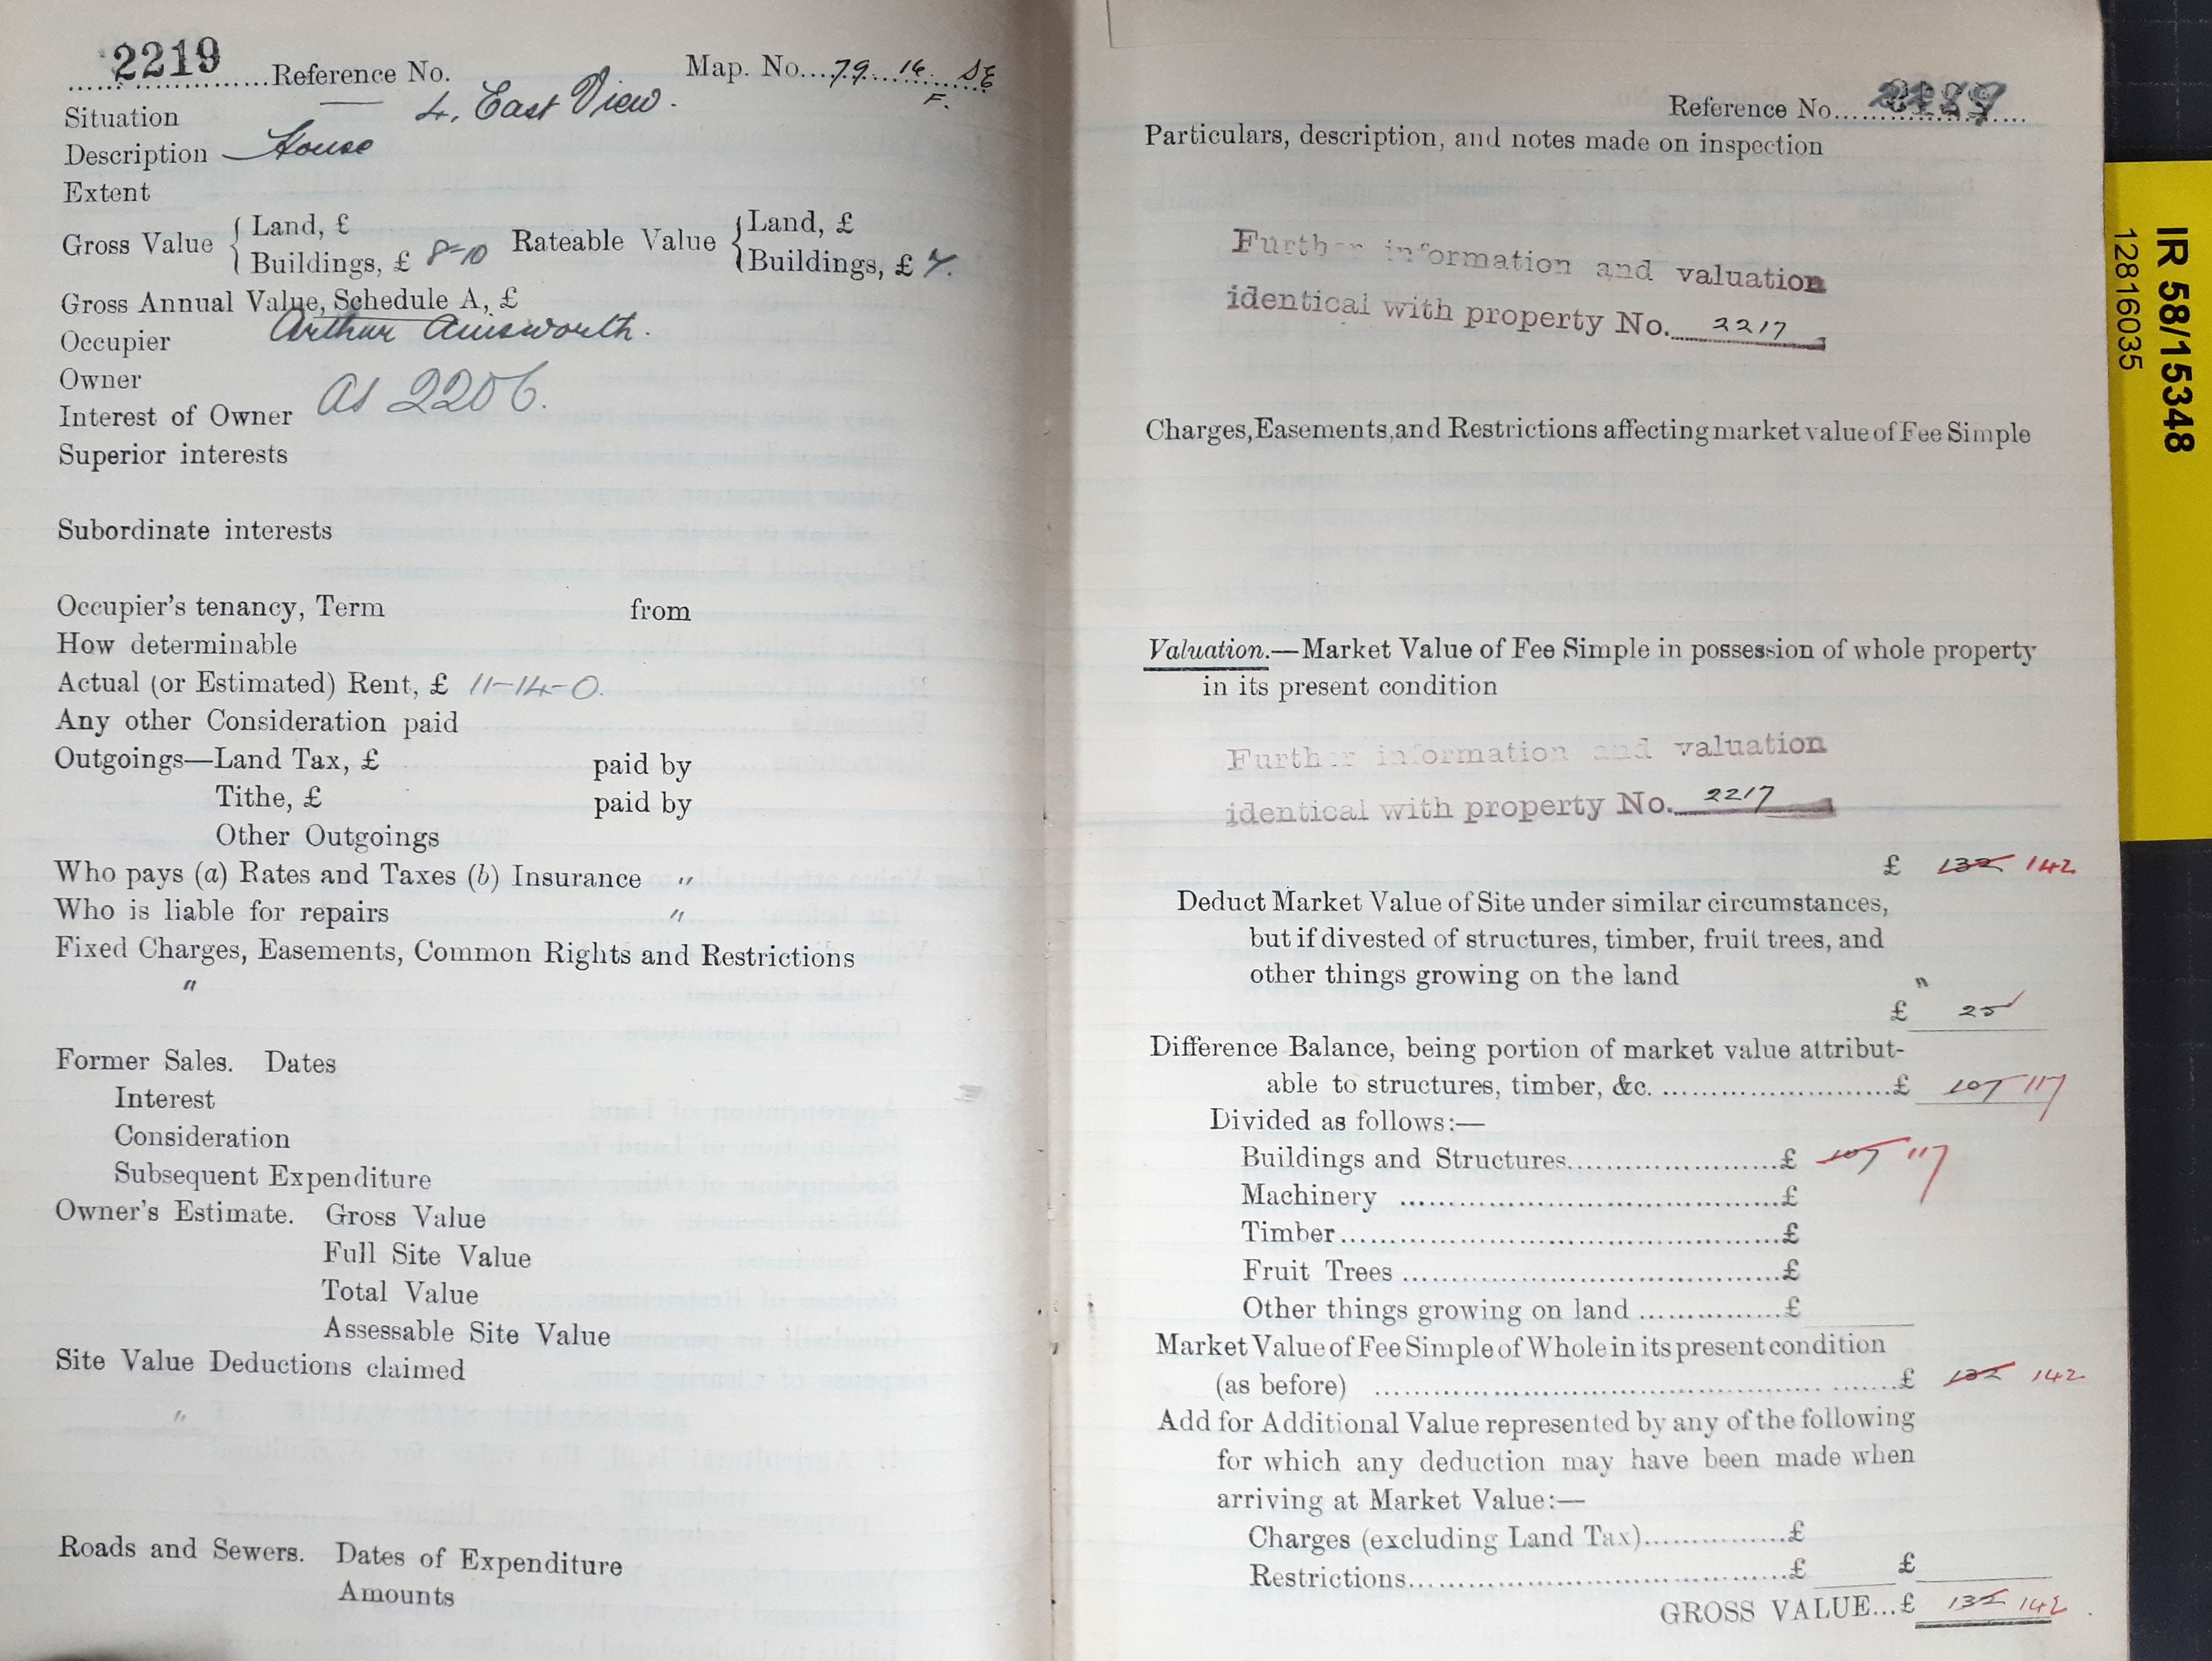 2219 Reference No. Map. No. 79. 14. SE
F.
Situation 4, East View.
Description House
Extent
Gross Value { Land, £ Rateable Value { Land, £
Buildings, £ 8-10 Buildings, £ 7.
Gross Annual Value, Schedule A, £
Occupier Arthur Ainsworth.
Owner
Interest of Owner as 2206.
Superior interests
Subordinate interests
Occupier's tenancy, Term from
How determinable
Actual (or Estimated) Rent, £ 11-14-0.
Any other Consideration paid
Outgoings—Land Tax, £ paid by
Tithe, £ paid by
Other Outgoings
Who pays (a) Rates and Taxes (b) Insurance "
Who is liable for repairs "
Fixed Charges, Easements, Common Rights and Restrictions
"
Former Sales. Dates
Interest
Consideration
Subsequent Expenditure
Owner's Estimate. Gross Value
Full Site Value
Total Value
Assessable Site Value
Site Value Deductions claimed
"
Roads and Sewers. Dates of Expenditure
Amounts
Reference No.
Particulars, description, and notes made on inspection
Further information and valuation
identical with property No. 2217
Charges, Easements, and Restrictions affecting market value of Fee Simple
Valuation.—Market Value of Fee Simple in possession of whole property
in its present condition
Further information and valuation
identical with property No. 2217
£ 132 142
Deduct Market Value of Site under similar circumstances,
but if divested of structures, timber, fruit trees, and
other things growing on the land "
£ 25
Difference Balance, being portion of market value attribut-
able to structures, timber, &c. £ 107 117
Divided as follows:—
Buildings and Structures £ 107 117
Machinery £
Timber £
Fruit Trees £
Other things growing on land £
Market Value of Fee Simple of Whole in its present condition
(as before) £ 132 142
Add for Additional Value represented by any of the following
for which any deduction may have been made when
arriving at Market Value:—
Charges (excluding Land Tax) £
Restrictions £ £
GROSS VALUE... £ 132 142
IR 58/15348
12816035